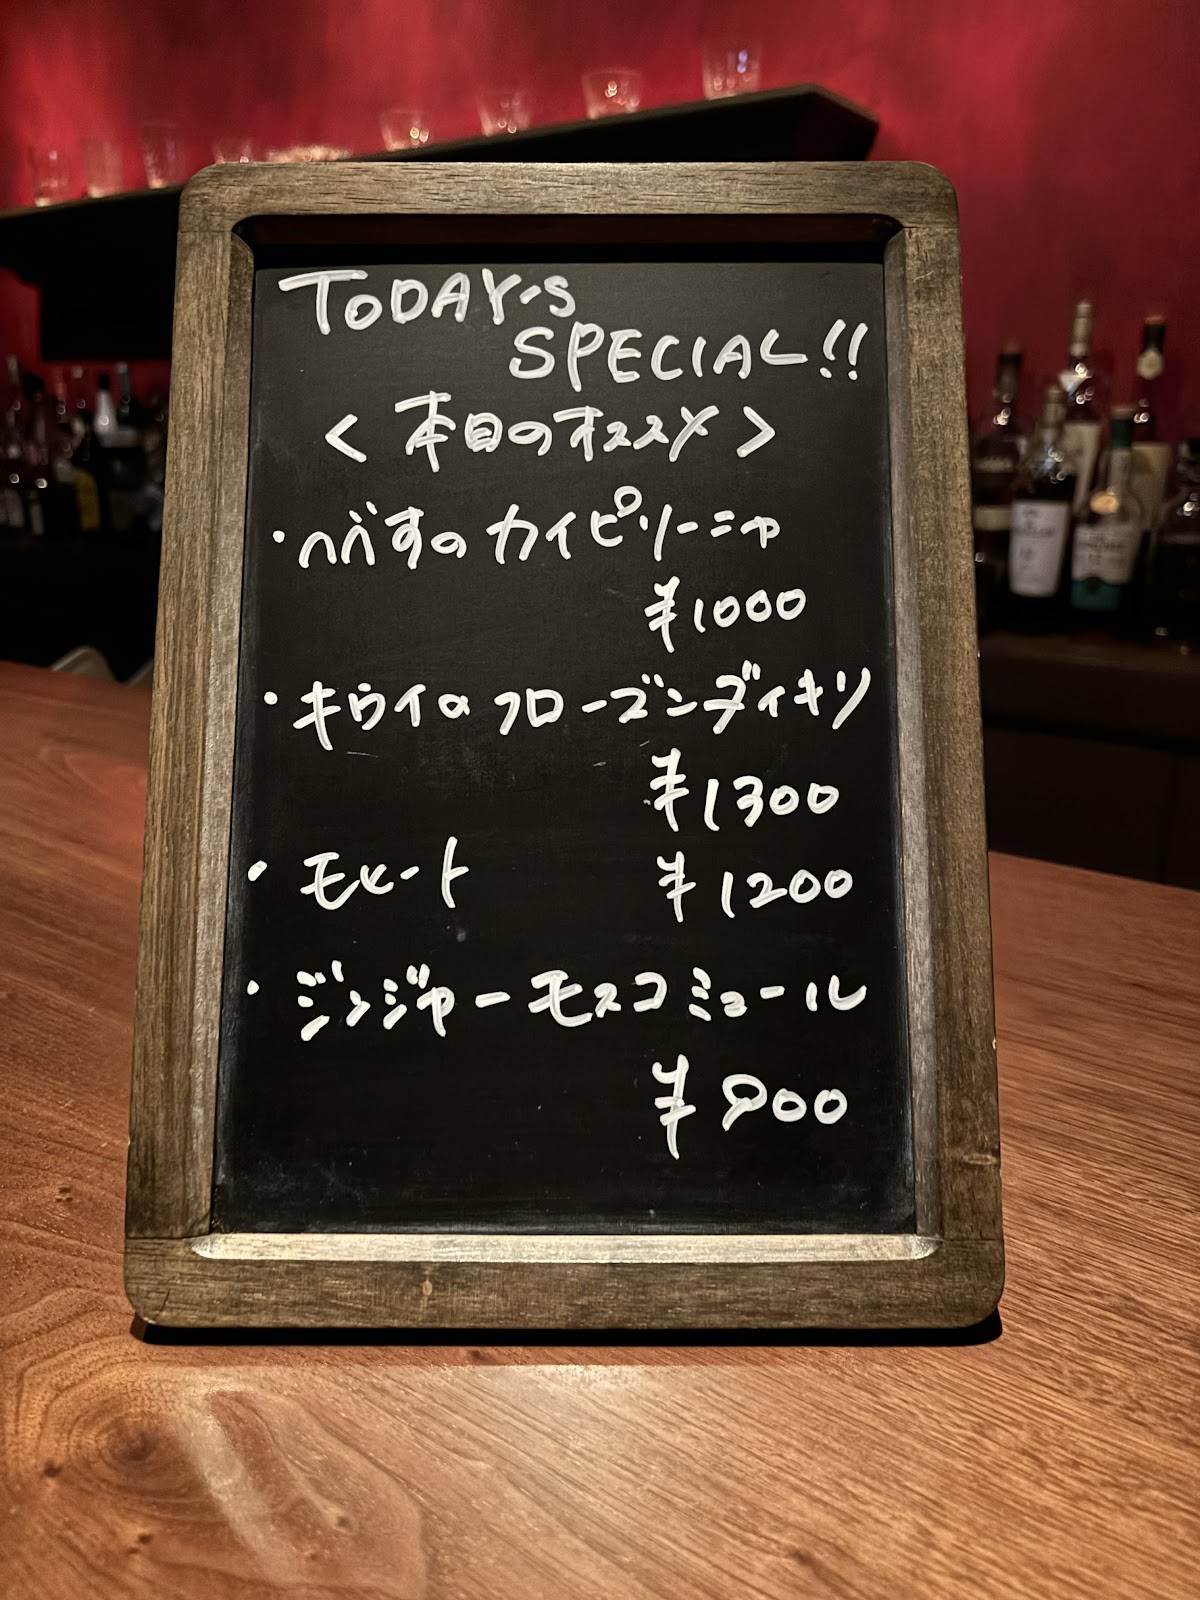 TODAY'S
SPECIAL!!
<本日のオススメ>
・へべすのカイピリーニャ
¥1000
・キウイのフローズンダイキリ
¥1300
・モヒート ¥1200
・ジンジャーモスコミュール
¥900